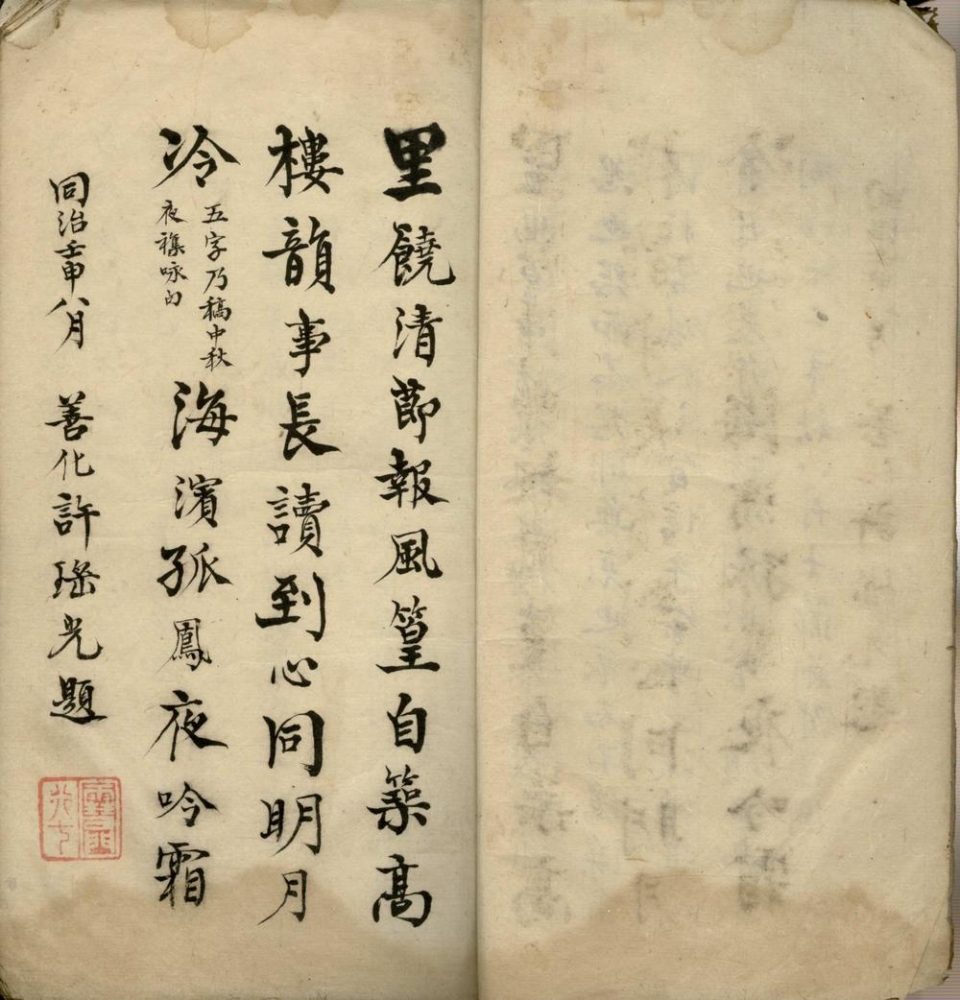 里饒清節報風篁自築高
樓韻事長讀到心同明月
冷
五字乃稿中秋
夜襍咏句
海濱孤鳳夜吟霜
同治壬申八月 善化許瑤光題